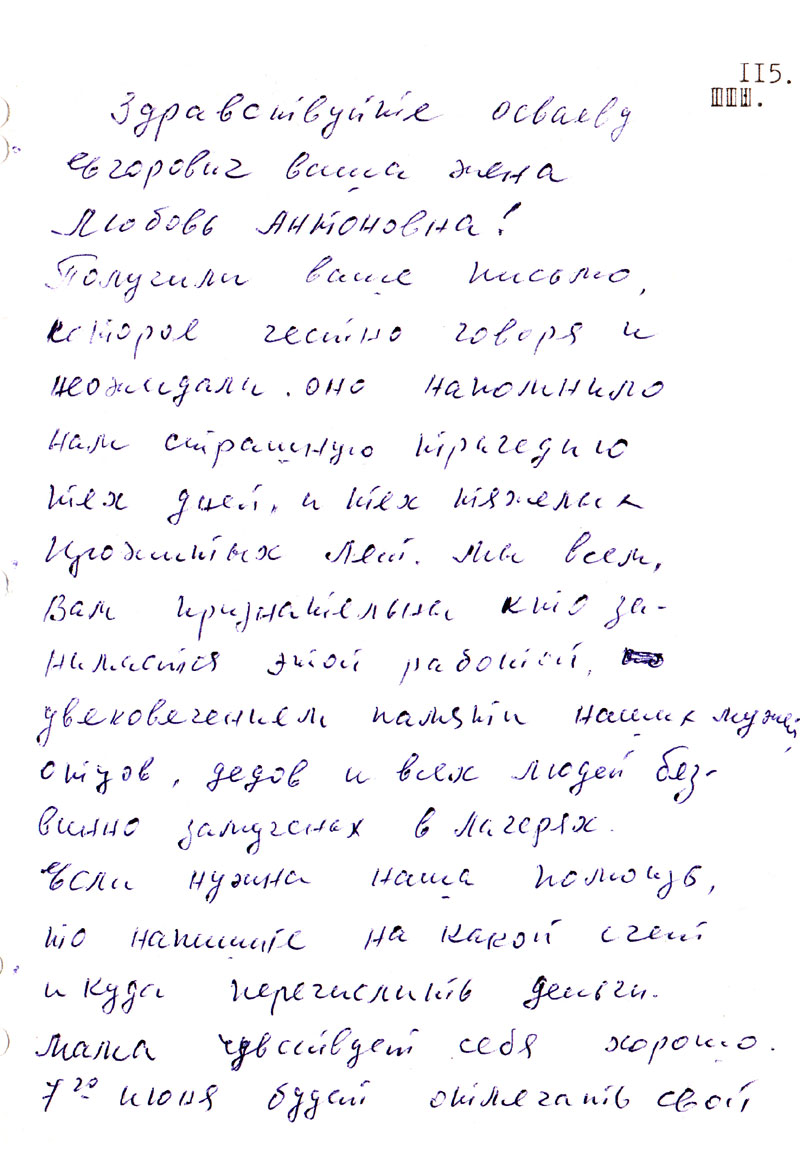 115.
Здравствуйте Осваевд
Евгорович ваша жена
Любовь Антоновна!
Получили ваше письмо,
которое честно говоря и
неожидали. оно напомнило
нам страшную трагедию
тех дней, и тех тяжелых
прожитых лет. Мы всем,
Вам признательны кто за-
нимается этой работой,
увековечением памяти наших мужей
отцов, дедов и всех людей без-
винно замученах в лагерях.
Если нужна наша помощь,
то напишите на какой счет
и куда перечислить деньги.
Мама чувствует себя хорошо.
7го июня будет отмечать свой